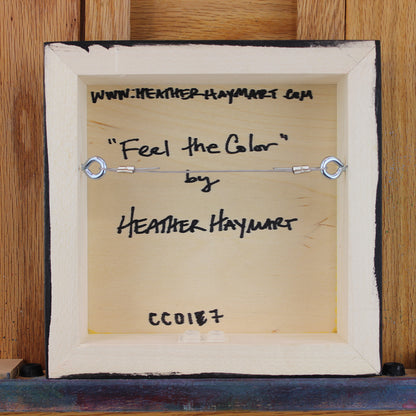 WWW.HEATHERHAYMART.COM
"Feel the Color"
by
HEATHER HAYMART
CC0187